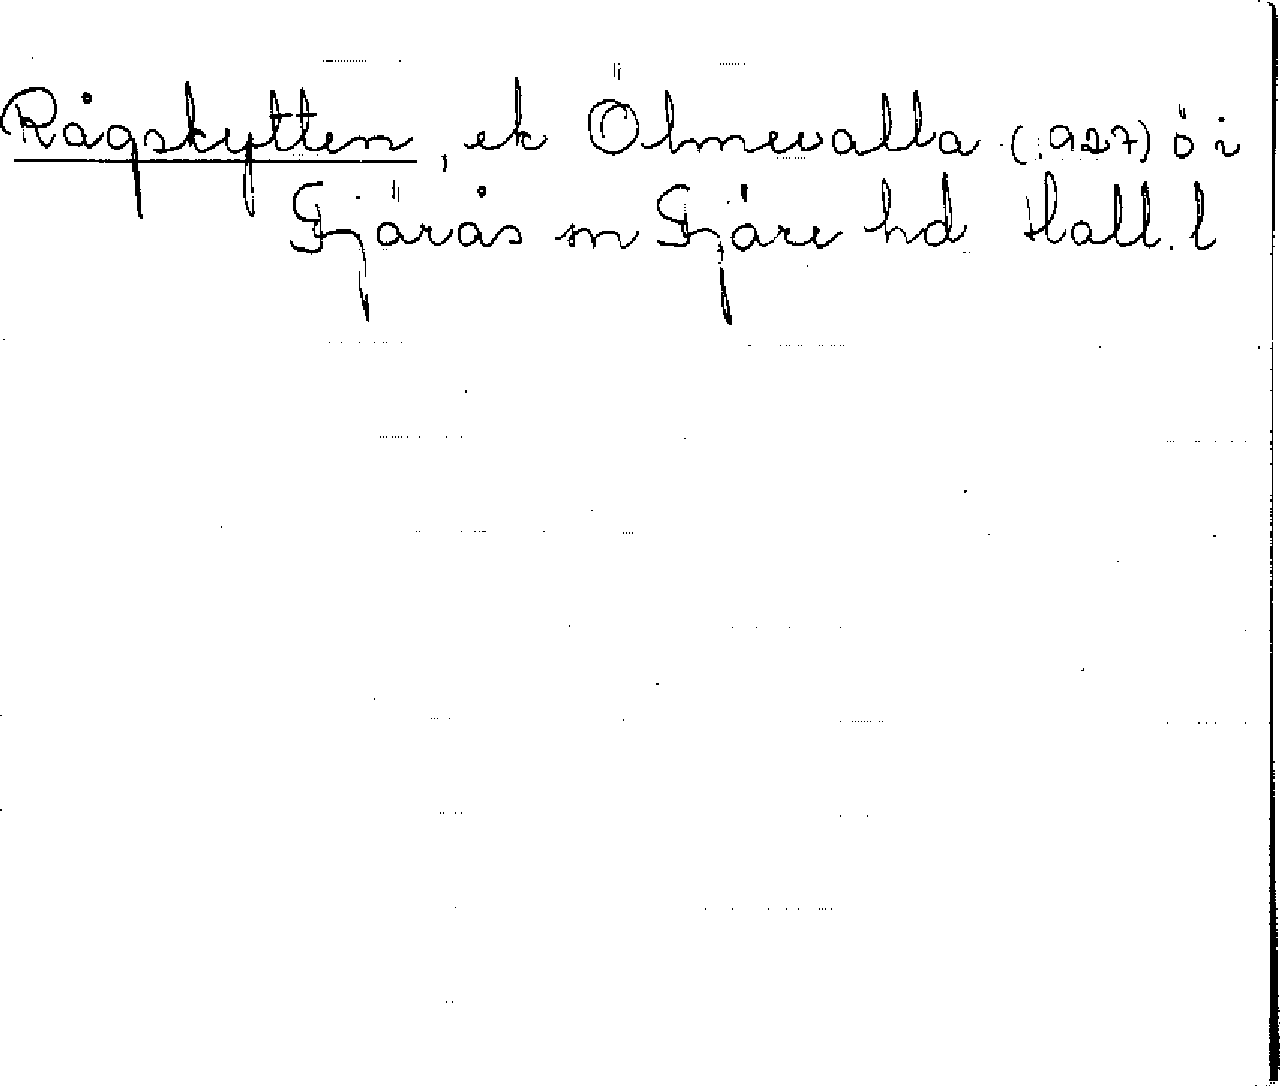 Rågskytten, ek Ölmevalla (1927) ö i
Fjärås sn Fjäre hd Hall. l